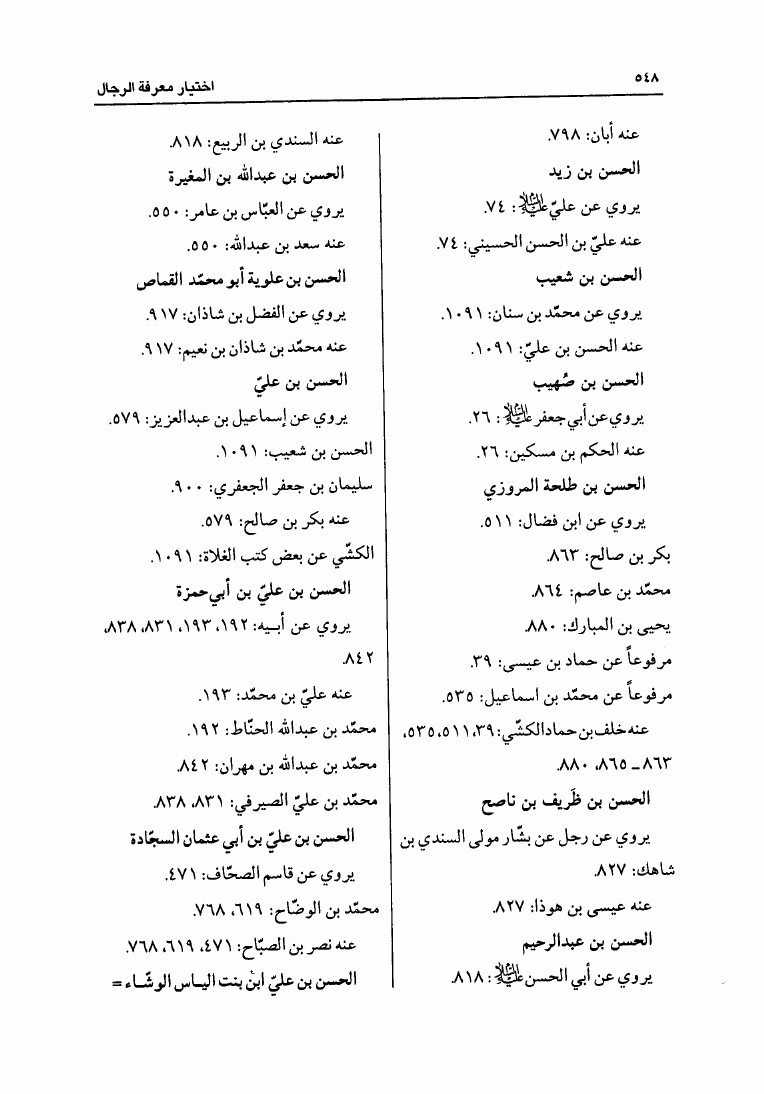 ٥٤٨
اختيار معرفة الرجال
عنه أبان: ٧٩٨.
الحسن بن زيد
يروي عن عليّ عليه السلام: ٧٤.
عنه عليّ بن الحسن الحسيني: ٧٤.
الحسن بن شعيب
يروي عن محمّد بن سنان: ١٠٩١.
عنه الحسن بن عليّ: ١٠٩١.
الحسن بن صُهيب
يروي عن أبي جعفر عليه السلام: ٢٦.
عنه الحكم بن مسكين: ٢٦.
الحسن بن طلحة المروزي
يروي عن ابن فضال: ٥١١.
بكر بن صالح: ٨٦٣.
محمّد بن عاصم: ٨٦٤.
يحيى بن المبارك: ٨٨٠.
مرفوعاً عن حماد بن عيسى: ٣٩.
مرفوعاً عن محمّد بن اسماعيل: ٥٣٥.
عنه خلف بن حماد الكشّي: ٣٩، ٥١١، ٥٣٥،
٨٦٣ ـ ٨٦٥، ٨٨٠.
الحسن بن ظَريف بن ناصح
يروي عن رجل عن بشّار مولى السندي بن
شاهك: ٨٢٧.
عنه عيسى بن هوذا: ٨٢٧.
الحسن بن عبدالرحيم
يروي عن أبي الحسن عليه السلام: ٨١٨.
عنه السندي بن الربيع: ٨١٨.
الحسن بن عبدالله بن المغيرة
يروي عن العبّاس بن عامر: ٥٥٠.
عنه سعد بن عبدالله: ٥٥٠.
الحسن بن علوية أبو محمّد القماص
يروي عن الفضل بن شاذان: ٩١٧.
عنه محمّد بن شاذان بن نعيم: ٩١٧.
الحسن بن عليّ
يروي عن إسماعيل بن عبدالعزيز: ٥٧٩.
الحسن بن شعيب: ١٠٩١.
سليمان بن جعفر الجعفري: ٩٠٠.
عنه بكر بن صالح: ٥٧٩.
الكشّي عن بعض كتب الغلاة: ١٠٩١.
الحسن بن عليّ بن أبي حمزة
يروي عن أبيه: ١٩٢، ١٩٣، ٨٣١، ٨٣٨،
٨٤٢.
عنه عليّ بن محمّد: ١٩٣.
محمّد بن عبدالله الحنّاط: ١٩٢.
محمّد بن عبدالله بن مهران: ٨٤٢.
محمّد بن عليّ الصيرفي: ٨٣١، ٨٣٨.
الحسن بن عليّ بن أبي عثمان السجّادة
يروي عن قاسم الصحّاف: ٤٧١.
محمّد بن الوضّاح: ٦١٩، ٧٦٨.
عنه نصر بن الصبّاح: ٤٧١، ٦١٩، ٧٦٨.
الحسن بن عليّ ابن بنت الياس الوشّاء =